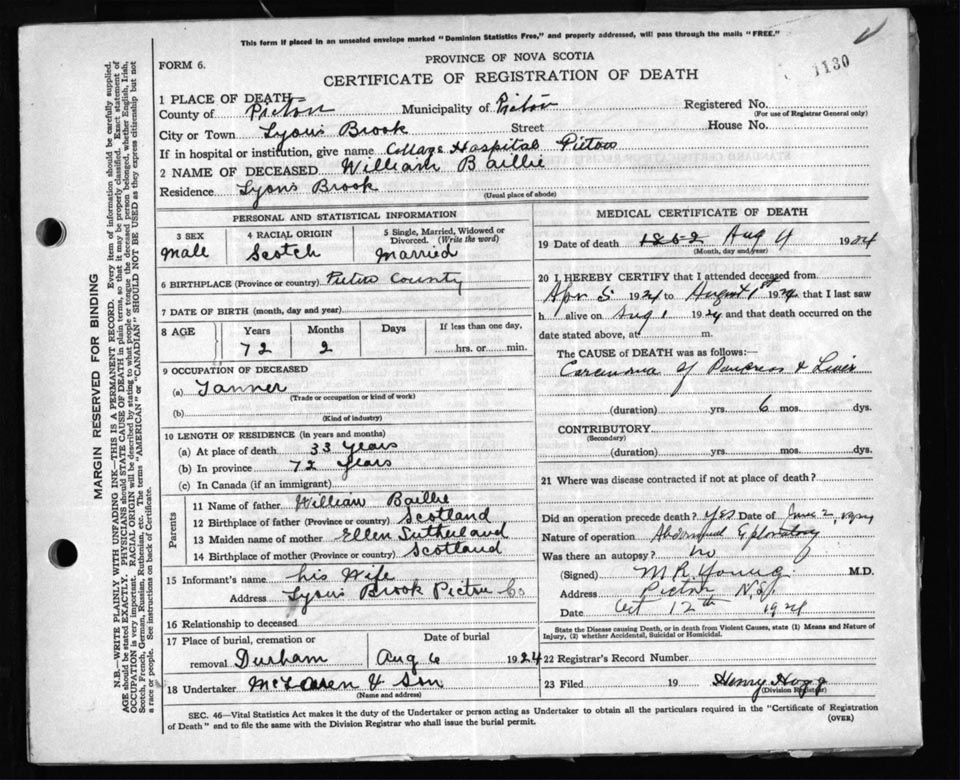 This form if placed in an unsealed envelope marked "Dominion Statistics Free," and properly addressed, will pass through the mails "FREE."
1130
FORM 6.
PROVINCE OF NOVA SCOTIA
CERTIFICATE OF REGISTRATION OF DEATH
1 PLACE OF DEATH
County of Pictou Municipality of Pictou Registered No.
(For use of Registrar General only)
City or Town Lyons Brook Street House No.
If in hospital or institution, give name Cottage Hospital Pictou
2 NAME OF DECEASED William Baillie
Residence Lyons Brook
(Usual place of abode)
PERSONAL AND STATISTICAL INFORMATION
3 SEX 4 RACIAL ORIGIN 5 Single, Married, Widowed or Divorced. (Write the word)
Male Scotch Married
6 BIRTHPLACE (Province or country) Pictou County
7 DATE OF BIRTH (month, day and year)
8 AGE Years Months Days If less than one day,
72 2 hrs. or min.
9 OCCUPATION OF DECEASED
(a) Tanner
(Trade or occupation or kind of work)
(b)
(Kind of industry)
10 LENGTH OF RESIDENCE (in years and months)
(a) At place of death 33 Years
(b) In province 72 Years
(c) In Canada (if an immigrant)
Parents
11 Name of father William Baillie
12 Birthplace of father (Province or country) Scotland
13 Maiden name of mother Ellen Sutherland
14 Birthplace of mother (Province or country) Scotland
15 Informant's name his Wife
Address Lyons Brook Pictou Co
16 Relationship to deceased
17 Place of burial, cremation or Date of burial
removal Durham Aug 6 1924
18 Undertaker McLaren & Son
(Name and address)
MEDICAL CERTIFICATE OF DEATH
19 Date of death 1852 Aug 4 1924
(Month, day and year)
20 I HEREBY CERTIFY that I attended deceased from
Apr 5 1924 to August 1st 1924 that I last saw
h alive on Aug 1 1924 and that death occurred on the
date stated above, at m.
The CAUSE of DEATH was as follows:—
Carcinoma of Pancreas & Liver
(duration) yrs. 6 mos. dys.
CONTRIBUTORY
(Secondary)
(duration) yrs. mos. dys.
21 Where was disease contracted if not at place of death?
Did an operation precede death? Yes Date of June 2, 1924
Nature of operation Abdominal Exploratory
Was there an autopsy? no
(Signed) M R Young M.D.
Address Pictou N.S.
Date Oct 12th 1924
State the Disease causing Death, or in death from Violent Causes, state (1) Means and Nature of
Injury, (2) whether Accidental, Suicidal or Homicidal.
22 Registrar's Record Number
23 Filed 19 Henry Hogg
(Division Registrar)
SEC. 46—Vital Statistics Act makes it the duty of the Undertaker or person acting as Undertaker to obtain all the particulars required in the "Certificate of Registration
of Death" and to file the same with the Division Registrar who shall issue the burial permit. (OVER)
MARGIN RESERVED FOR BINDING
N.B.—WRITE PLAINLY WITH UNFADING INK—THIS IS A PERMANENT RECORD. Every item of information should be carefully supplied.
AGE should be stated EXACTLY. PHYSICIANS should STATE CAUSE OF DEATH in plain terms, so that it may be properly classified. Exact statement of
OCCUPATION is very important. RACIAL ORIGIN will be described by stating to what people or tongue the deceased person belonged, whether English, Irish,
Scotch, French, German, Russian, Ruthenian, etc. The terms "AMERICAN" or "CANADIAN" SHOULD NOT BE USED as they express citizenship but not
a race or people. See instructions on back of Certificate.